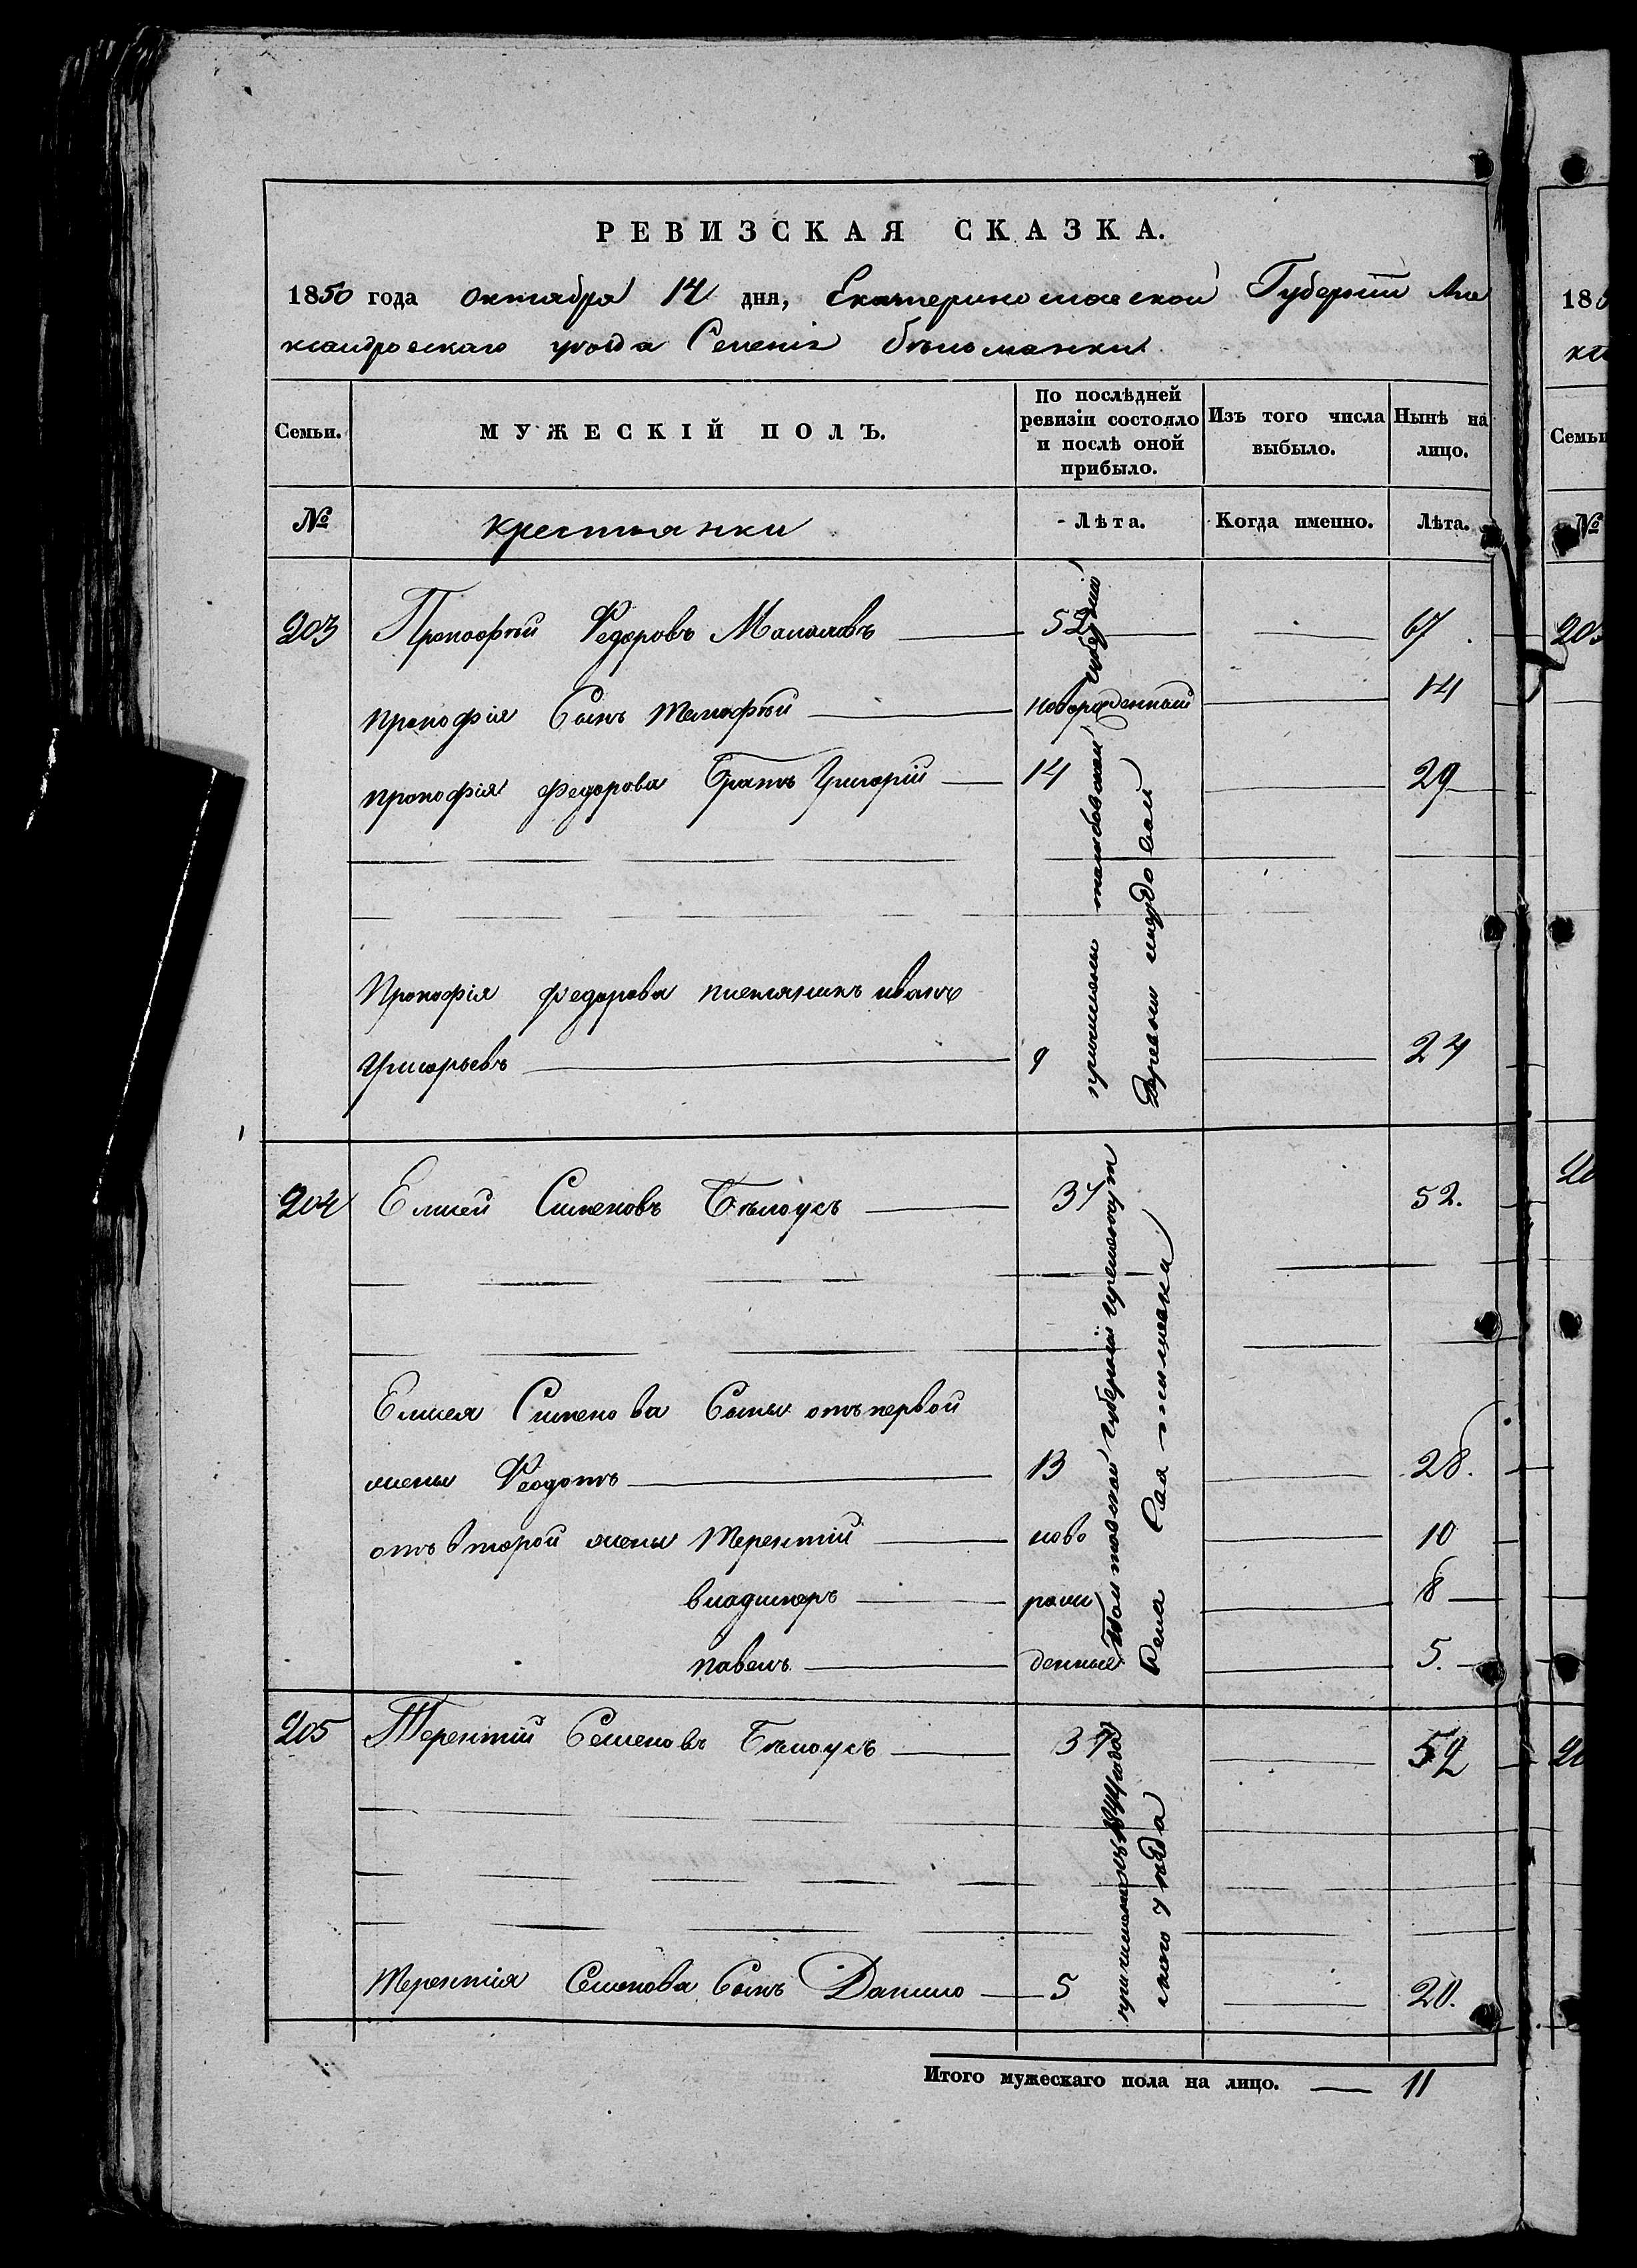 РЕВИЗСКАЯ СКАЗКА.
1850 года октября 14 дня, Екатеринославской Губернии Але
ксандровскаго уезда Селенія беломанки
Семьи.
МУЖЕСКІЙ ПОЛЪ.
По послѣдней ревизіи состояло и послѣ оной прибыло.
Изъ того числа выбыло.
Нынѣ на лицо.
№
крестьянки
Лѣта.
Когда именно.
Лѣта.
203 Прокофий Федоровъ Малаховъ 52 67
прокофія Сынъ Тимофѣй новорожденный 14
прокофія федорова Братъ Григорій 14 29
Прокофія федорова племяникъ иванъ
Григорьевъ 9 24
причислены тамбовской Губерніи
деревни
204 Елисей Сименовъ Бѣлоусъ 37 52.
Елисея Сименова Сыны отъ первой
жены Феодотъ 13 28.
отъ второй жены Терентій ново 10
владимеръ рож 8
павелъ денные 5.
Полтавской Губерніи
села
205 Терентій Семеновъ Бѣлоусъ 37 52
Терентія Семенова Сынъ Данило 5 20.
причислены
уезда
Итого мужескаго пола на лицо. 11